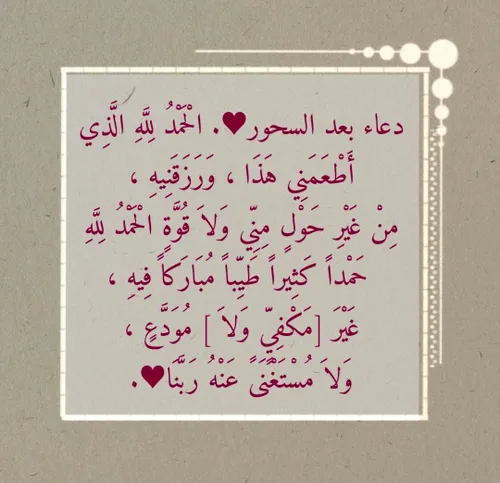 دعاء بعد السحور♥. الْحَمْدُ لِلَّهِ الَّذِي
أَطْعَمَنِي هَذَا ، وَرَزَقَنِيهِ ،
مِنْ غَيْرِ حَوْلٍ مِنِّي وَلاَ قُوَّةٍ الْحَمْدُ لِلَّهِ
حَمْداً كَثِيراً طَيِّباً مُبَارَكاً فِيهِ ،
غَيْرَ [مَكْفِيٍّ وَلاَ ] مُوَدَّعٍ ،
وَلاَ مُسْتَغْنَىً عَنْهُ رَبَّنَا♥.